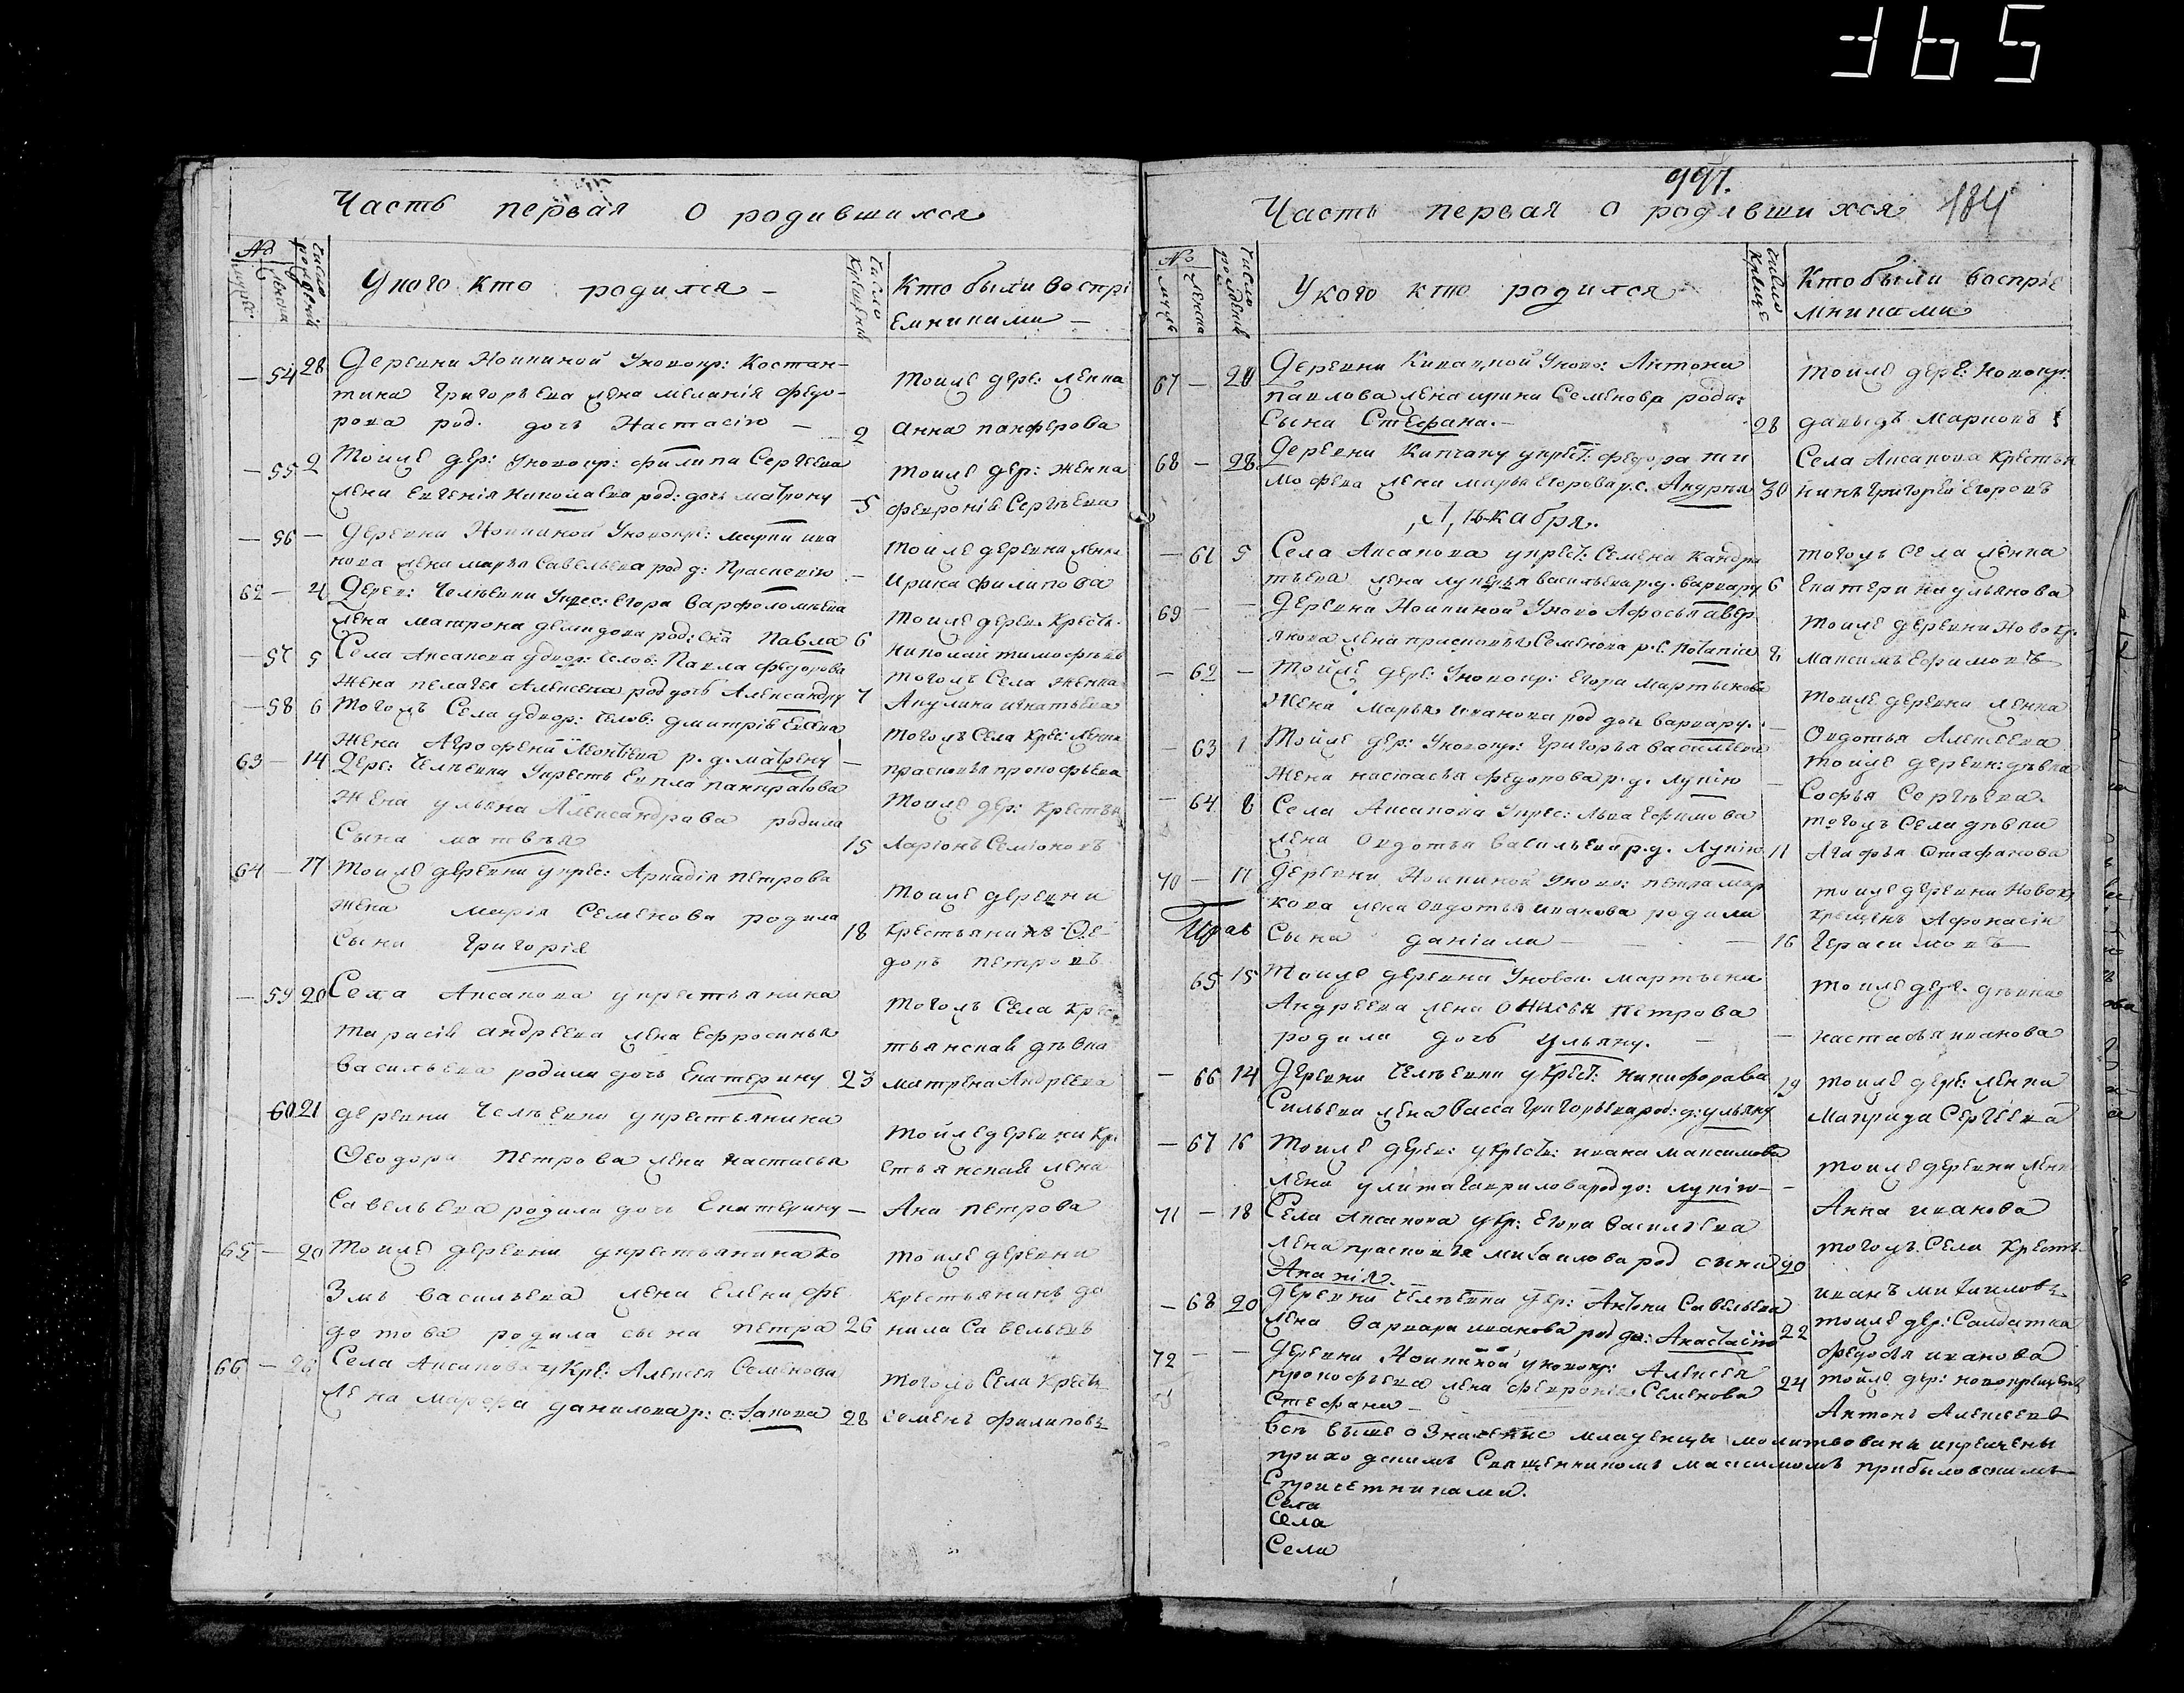 365
Часть первая о родившихся
№
Число рождения
У кого кто родился
Число крещения
Кто были воспрі
емниками
— 54 28 Деревни Ноипиной у новокр: Костан-
тина Григорьева жена меланія Федо-
рова род. дочь Настасію — 2
тоиже дере: женка
Анна панферова
— 55 2 Тоиже дер: у новокр: филипа Сергеева
жена Евгенія Николаева род: дочь матрону 5
тоиже дер: женка
февронія Сергѣева
— 56 — Деревни Ноипиной у новокре: марки ива
нова жена марья Савельева род д: Прасковію —
тоиже деревни женка
ирина филипова
62 — 4 Дерев: Челѣевки у крес: Егора Варфоломѣева
жена матрона демидова род: сна Павла 6
тоиже дерев. Кресть.
николаи тимофѣевъ
— 57 5 Села Аксакова у двор: челов: Павла Федорова
жена пелагея Алексеева род дочь Александру 7
тогожъ Села женка
Акулина игнатьева
— 58 6 Тогожъ Села у двор: челов: дмитрія Евсеева
жена Агрофена Леонтьева р. д. матрену —
тогожъ Села крес: женка
прасковья прокофьева
63 — 14 Дере: Челѣевки у кресть Евпла панкратова
жена ульяна Александрова родила
Сына матвѣя 15
тоиже дер: крестьян
Ларіонъ Семіоновъ
64 — 17 Тоиже деревни у крес: Аркадія петрова
жена марія Семенова родила
сына Григорія 18
тоиже деревни
крестьянинъ Фе-
доръ петровъ
— 59 20 Села Аксакова у крестьянина
тарасія андреева жена Ефросинья
васильева родила дочь Екатерину 23
тогожъ Села крес
тьянская дѣвка
матрена Андреева
60 21 деревни Челѣевки у крестьянина
Феодора Петрова жена настасья
Савельева родила дочь Екатерину —
тоиже деревни кре
стьянская жена
Ана петрова
65 — 20 Тоиже деревни у крестьянина ко
змы васильева жена Елена фе
дотова родила сына петра 26
тоиже деревни
крестьянинъ да
нила Савельевъ
66 — 26 Села Аксакова у кре: Алексея Семенова
жена марфа данилова р: с: Іакова 28
тогожъ Села кресть
семенъ филиповъ
997.
Часть первая о родившихся 184
№
Число рождения
У кого кто родился
Число креще
Кто были воспріе
мниками
67 — 20 Деревни Кивацкой у ново: Антона
павлова жена ирина Семенова роди:
Сына Стефана. — 28
тоиже дере: новокр:
давыдъ Марковъ
68 — 28 Деревни Кипчаку у крест: федора ти
мофеева жена марья Егорова р. с. Андрея 30
Села Аксакова крестья
нинъ Григореи Егоровъ
Декабря.
— 61 5 Села Аксакова у крест: Семена кандра
тьева жена лукерья васильева р. д. варвару 6
тогожъ Села женка
Екатерина ульянова
69 — — Деревни Ноипиной у ново Афонасья авер
янова жена прасковья Семенова р. с. Потапія 8
тоиже деревни Новокр.
Максимъ Ефимовъ
— 62 — Тоиже дере: у новокр: Егора Мартынова
жена Марья Иванова род доч варвару. .
тоиже деревни женка
Овдотья Алексеева
— 63 1 Тоиже дер: у новокр: Григорья васильева
жена настасья федорова р. д. лукію —
тоиже деревни: дѣвка
Софья Сергѣева.
— 64 8 Села Аксакова у крес: Льва Ефимова
жена Овдотья васильева р. д. лукію 11
тогожъ Села дѣвка
Агафья Стафанова
70 — 11 Деревни Ноипиной у ново: петра Мар
кова жена Овдотья иванова родила
Сына даніила — — 16
тоиже деревни Новок
крещенъ Афонасіи
Герасимовъ
65 15 Тоиже деревни у новок. мартына
Андреева жена Онисья петрова
родила дочь ульяну. — —
тоиже дере. дѣвка
настасья иванова
— 66 14 Деревни Челѣевки у крест: никифора ва
сильева жена васса Григорьева род: д: ульяну 19
тоиже дере: женка
Маврида Сергеева
— 67 16 Тоиже дерев: у кресть: ивана максимова
жена улита Гавриловарод до: лукію — —
тоиже деревни жен
Анна иванова
71 — 18 Села Аксакова у кр: Егора Васильева
жена прасковья михаилова род сына 20
Ананія.
тогожъ Села кресть
иванъ михаиловъ
— 68 20 Деревни Челѣевки у кр: Антона Савельева
жена варвара иванова род до: Анастасію 22
тоиже дер: Салдатка
федосья иванова
72 — — Деревни Ноипиной у новокр: Алексея
прокофьева жена февронія Семенова 24
Стефана —
тоиже дер: новокрещенъ
Антонъ Алексеевъ
всѣ выше означенные младенцы молитвованы и крещены
приходскимъ Священникомъ максимомъ прибыловскимъ
С причетниками.
Села
Села
Села